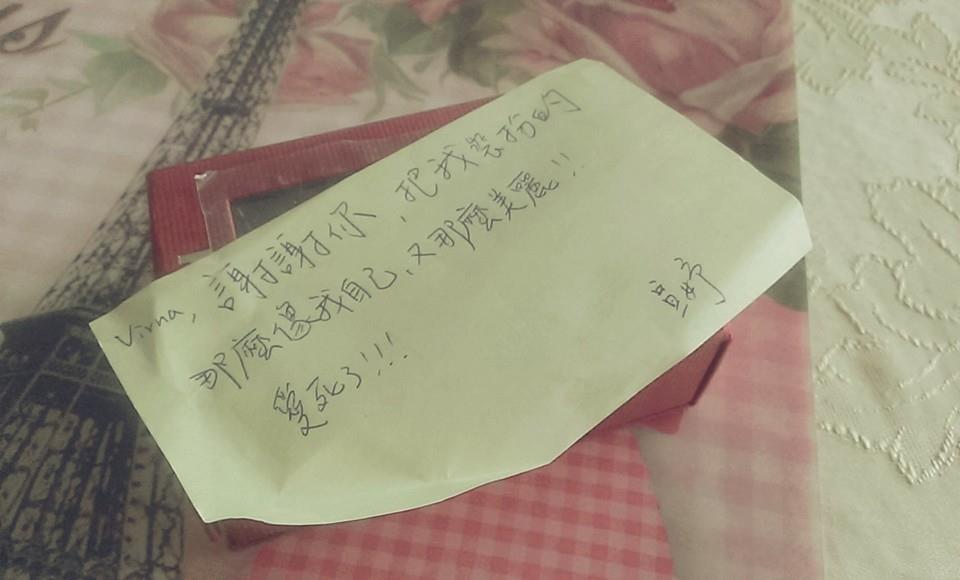 Virna, 謝謝你, 把我裝扮的
那麼像我自己, 又那麼美麗!!
愛死了!!!
亘妤